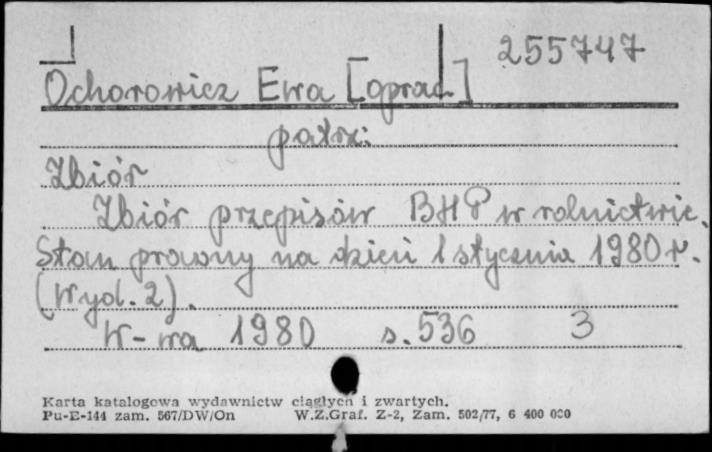 255747
Ochorowicz Ewa [oprac.]
patrz:
Zbiór
Zbiór przepisów BHP w rolnictwie.
Stan prawny na dzień 1 stycznia 1980 r.
(Wyd. 2).
W-wa 1980 s. 536 3
Karta katalogowa wydawnictw ciągłych i zwartych.
Pu-E-144 zam. 567/DW/On W.Z.Graf. Z-2, Zam. 502/77, 6 400 000